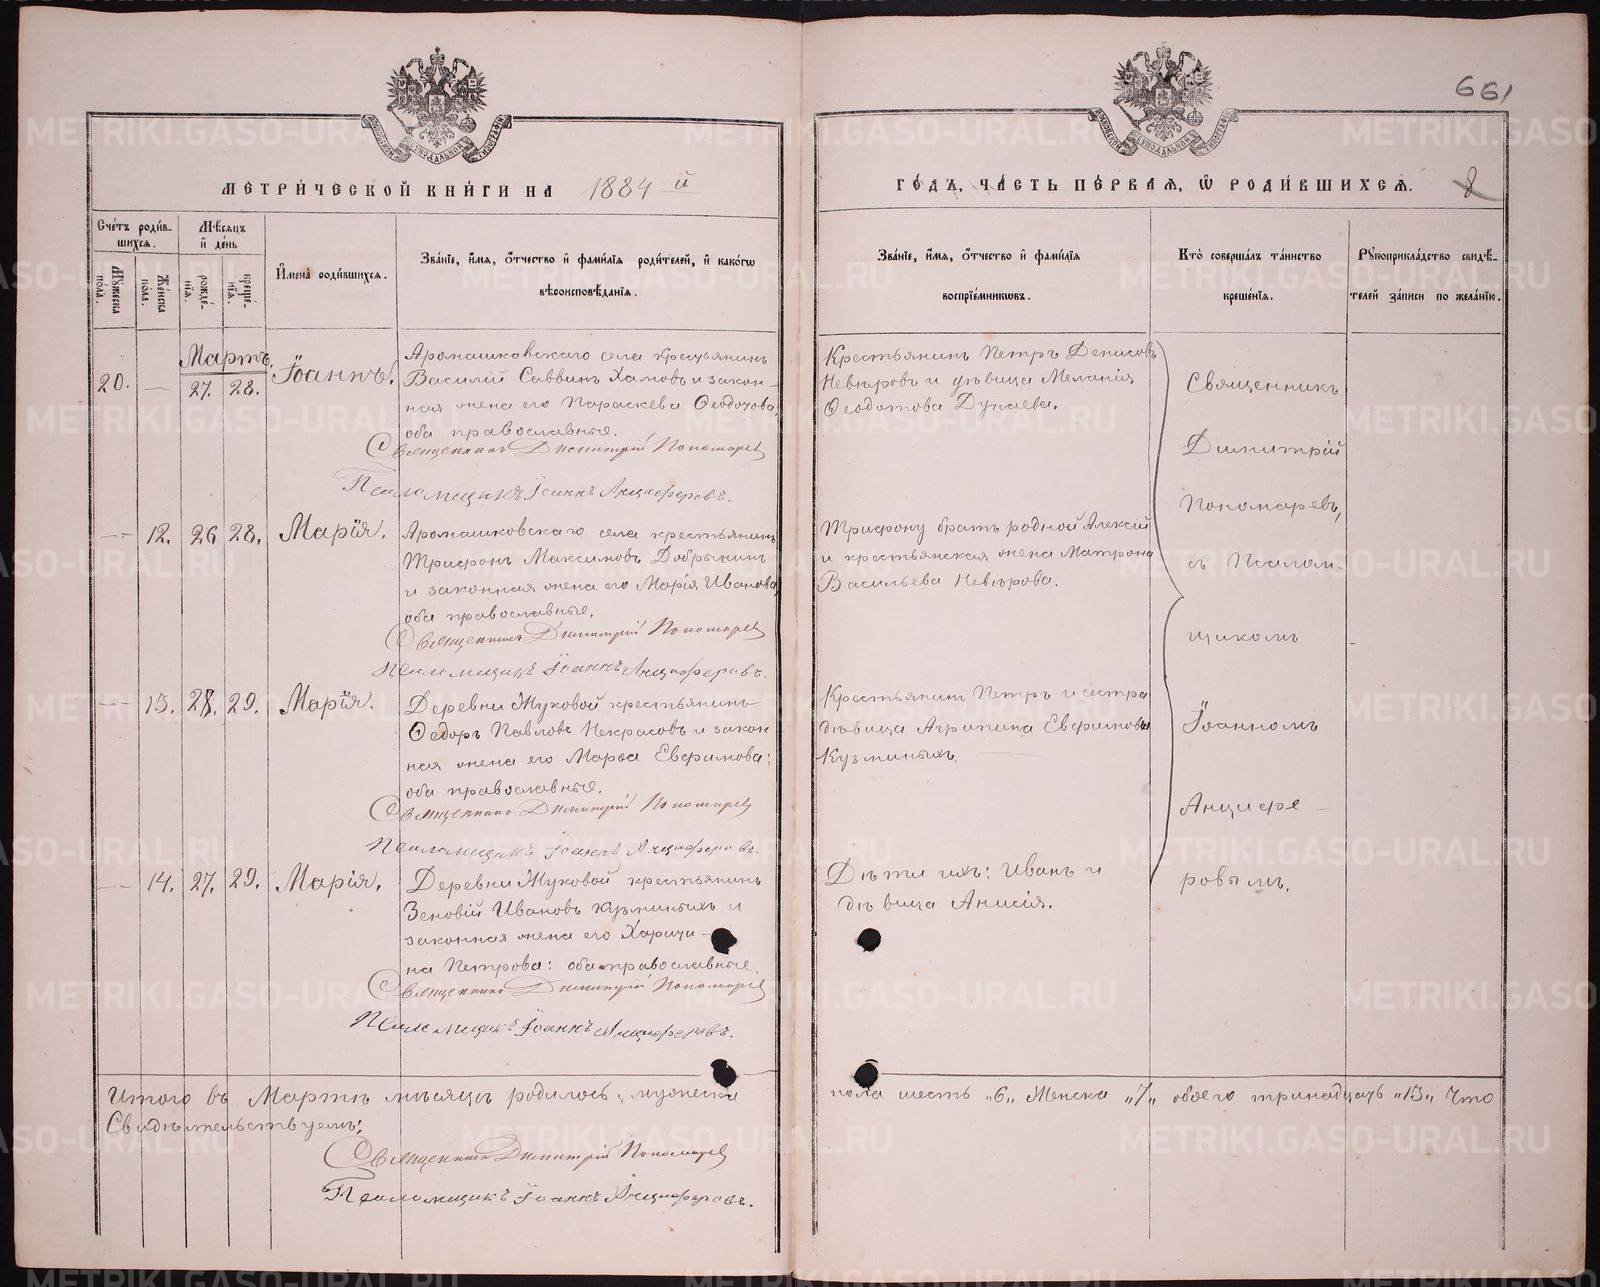 661
МЕТРИ́ЧЕСКОЙ КНИ́ГИ НА 1884й
ГО́ДЪ, ЧА́СТЬ ПЕ́РВАЯ, Ѡ РОДИ́ВШИХСЯ.
8
Сче́тъ роди́в-
шихся.
Мѣсяцъ
и де́нь
Му́жеска
по́ла.
Же́нска
по́ла.
рожде́-
нїя.
креще́-
нїя.
И҆мена̀ роди́вшихся.
Зва́нїе, и҆́мя, ѻ҆́тчество и҆ фами́лїя роди́телей, и҆ како́гѡ
вѣроисповѣ́данїя.
Зва́нїе, и҆́мя, ѻ҆́тчество и҆ фами́лїя
воспрїе́мникѡвъ.
Кто̀ соверша́лъ та́инство
креще́нїя.
Рꙋкоприкла́дство свидѣ́-
телей за́писи по жела́нїю.
Мартъ.
20. — 27. 28. Іоаннъ.
Аромашковскаго села крестьянинъ
Василій Саввинъ Хамовъ и закон-
ная жена его Параскева Ѳеодотова,
оба православные.
Священникъ Димитрій Пономарев
Псаломщикъ Іоаннъ Анциферовъ.
Крестьянинъ Петръ Денисовъ
Невѣровъ и дѣвица Меланія
Ѳеодотова Дунаева.
— 12. 26 28. Марія.
Аромашковскаго села крестьянинъ
Трифонъ Максимовъ Добрынинъ
и законная жена его Марія Иванова,
оба православные.
Священникъ Димитрій Пономарев
Псаломщикъ Іоаннъ Анциферовъ.
Трифону братъ родной Алексій
и крестьянская жена Матрона
Васильева Невѣрова.
— 13. 28. 29. Марія.
Деревни Жуковой крестьянинъ
Ѳедоръ Павловъ Некрасовъ и закон
ная жена его Марѳа Евфимова;
оба православные.
Священникъ Димитрій Пономарев
Псаломщикъ Іоаннъ Анциферовъ.
Крестьянинъ Петръ и сестра
дѣвица Агрипина Евфимовы
Кузминыхъ.
— 14. 27. 29. Марія.
Деревни Жуковой крестьянинъ
Зеновій Ивановъ Кузминыхъ и
законная жена его Харити-
на Петрова: оба православные.
Священникъ Димитрій Пономарев
Псаломщикъ Іоаннъ Анциферовъ.
Дѣти ихъ: Иванъ и
дѣвица Анисія.
Священникъ
Димитрій
Пономаревъ,
съ Псалом-
щикомъ
Іоанномъ
Анцифе-
ровымъ.
Итого въ Мартѣ мѣсяцѣ родилось: мужеска
пола шесть „6„ Женска „7„ обоего тринадцать „13„ Что
Свидѣтельствуемъ:
Священникъ Димитрій Пономарев
Псаломщикъ Іоаннъ Анциферовъ.
METRIKI.GASO-URAL.RU